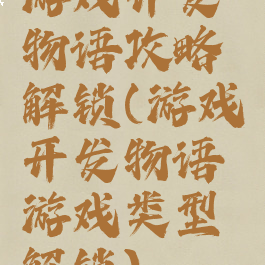 游戏开发
物语攻略
解锁(游戏
开发物语
游戏类型
解锁)